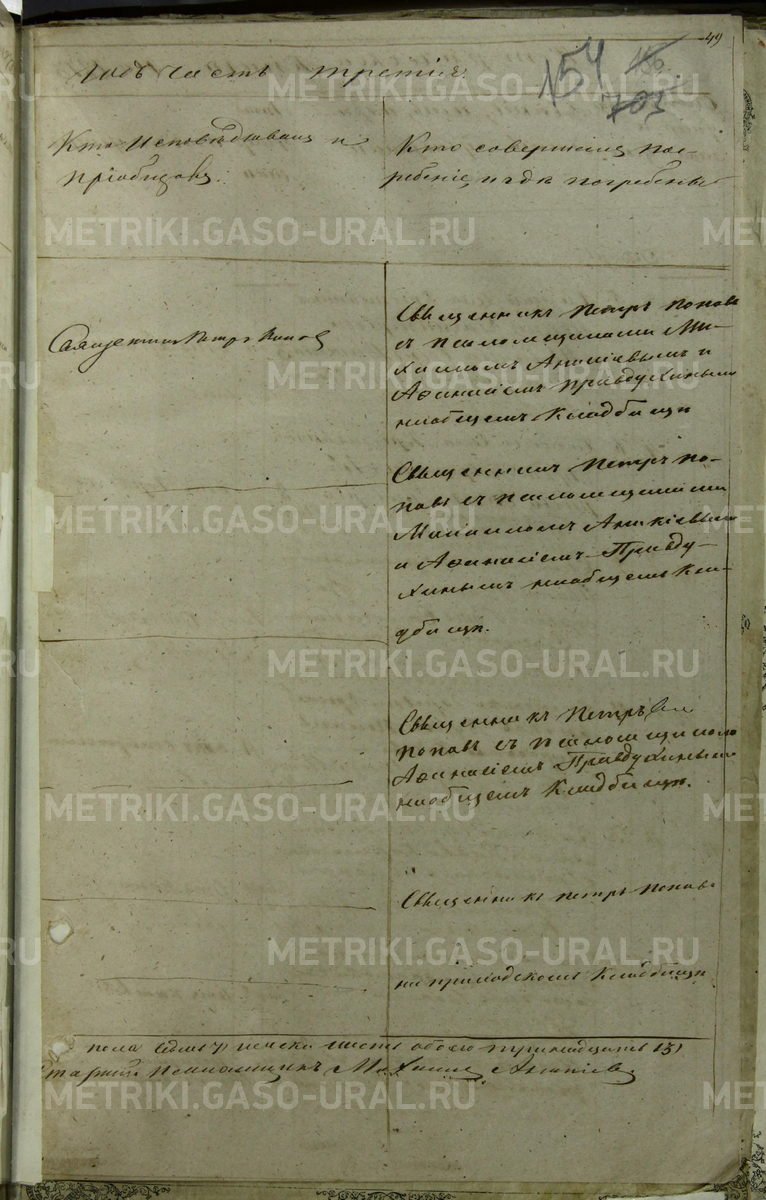 49
годъ часть третія.
154
146
703
Кто исповѣдывалъ и
пріобщалъ.
Кто совершалъ пог-
ребеніе, и гдѣ погребены
Священникъ Петръ Попов
Священникъ Петръ Поповъ
съ псаломщиками Ми-
хаиломъ Аникіевымъ и
Афанасіемъ Правдухинымъ
на общемъ кладбищѣ
Священникъ Петръ По-
повъ съ псаломщиками
Михаиломъ Аникіевымъ
и Афанасіемъ Правду-
хинымъ на общемъ кла-
дбищѣ.
Священникъ Петръ
Поповъ съ псаломщикомъ
Афанасіемъ Правдухинымъ
на общемъ кладбищѣ.
Священникъ Петръ Поповъ
на приходскомъ кладбищѣ
пола седмь 7) женска шесть обоего тринадцать 13)
старшій псаломщикъ Михаилъ Аникіевъ
METRIKI.GASO-URAL.RU